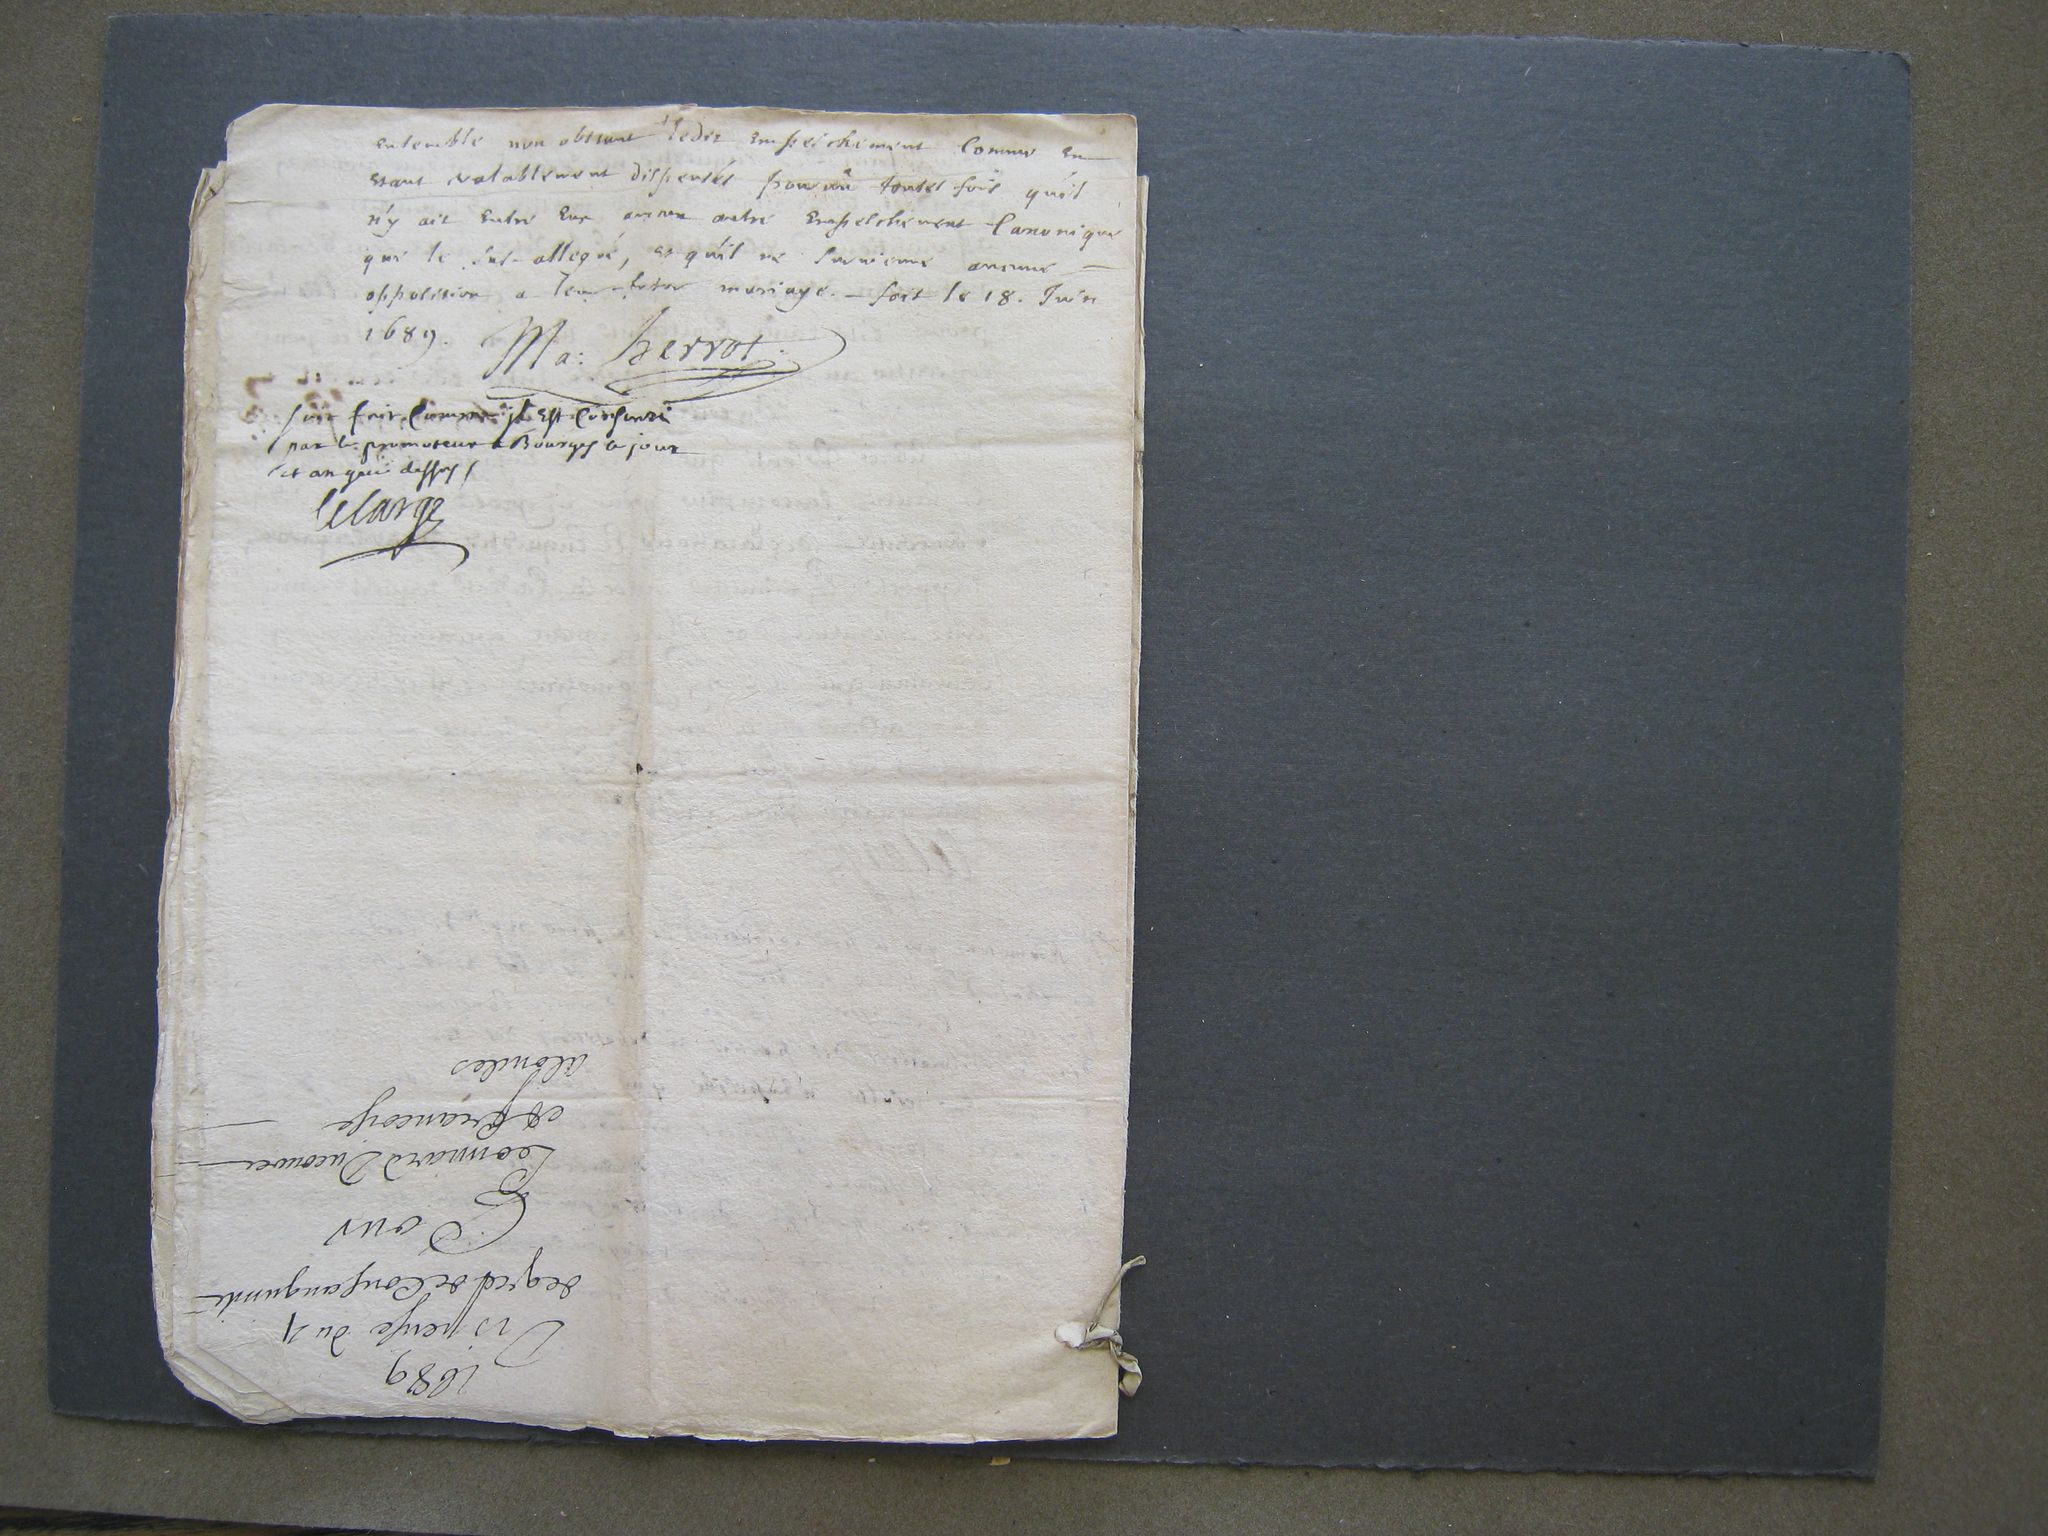 ensemble non obstant ledit empeschement comme en
estant valablement dispensés pourvû toutes fois qu'il
n'y ait entre eux aucun autre empeschement canonique
que le sus-allegué, et qu'il ne survienne aucune
opposition a leur futur mariage. fait le 18. Juin
1689. Ma: herrot.
soit fait comme il est consenti
par le promoteur a Bourges le jour
et an que dessus
lelarge
1689
Dispense du 4
degred de Consanguinité
Pour
Leonnard Ducouret
et Francoise